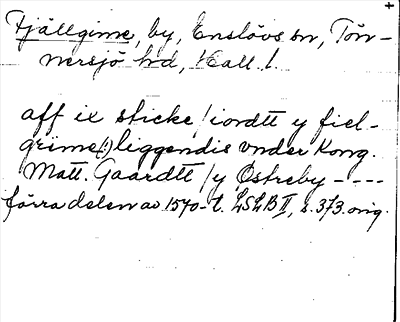 Fjällgime, by, Enslövs sn, Tön-
nersjö hd, Hall. l.
aff ix sticke / iordtt y fiel-
grime (!) liggendis vnder Kong.
Matt. Gaardtt / y Østreby ----
förra delen av 1570-t. LSLB II, s. 373. orig.